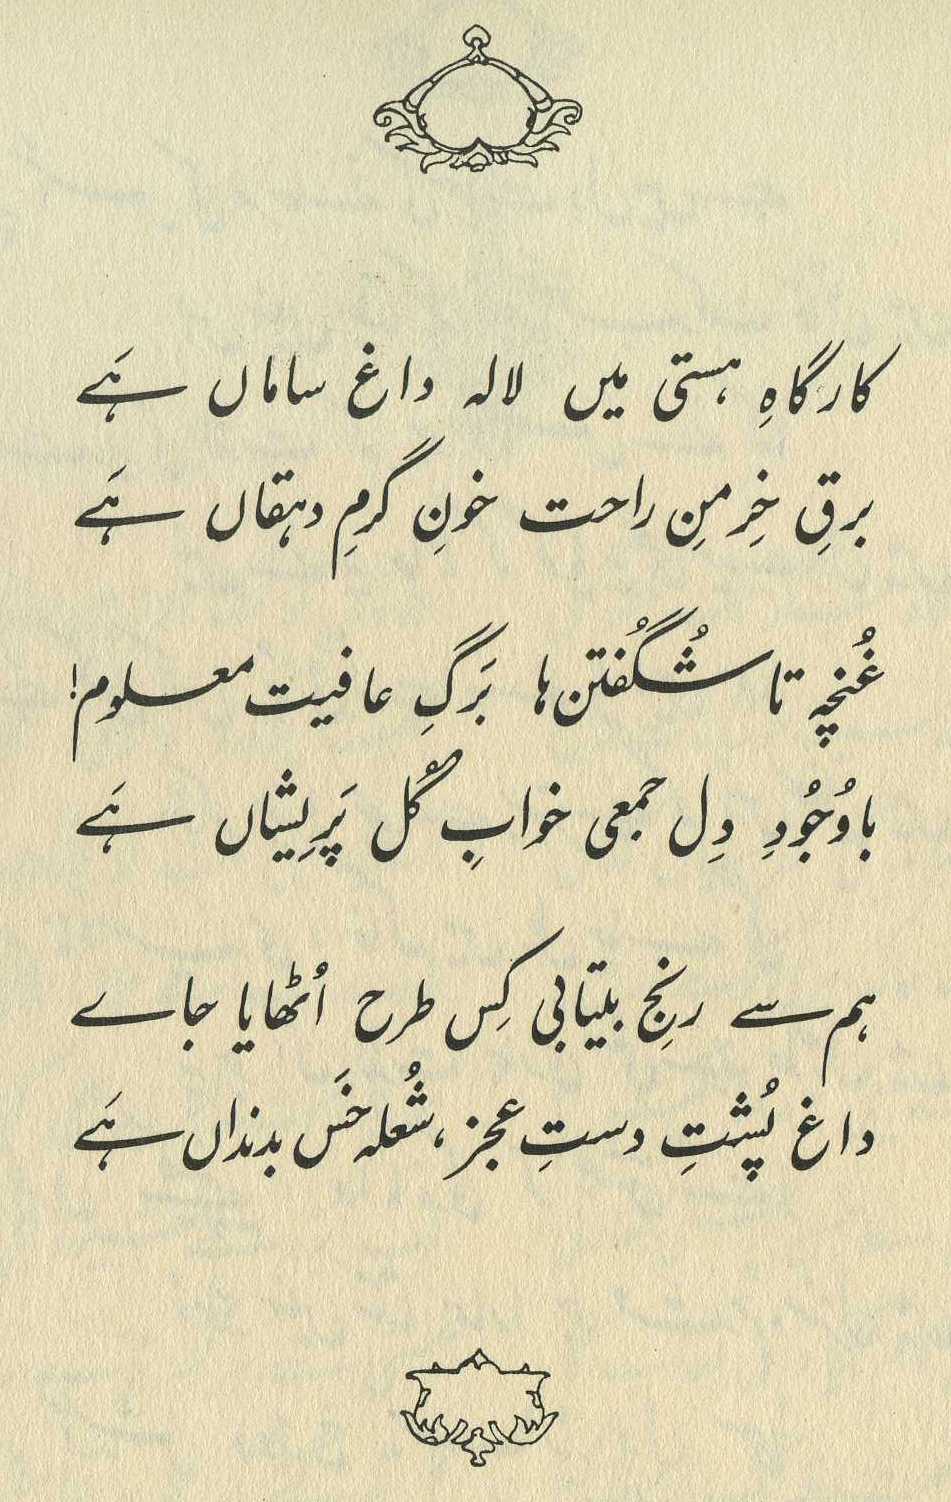 کارگاہِ ہستی میں لالہ داغ ساماں ہَے
برقِ خِرمنِ راحت خونِ گرمِ دہقاں ہَے
غُنچہ تا شُگُفتن ہا بَرگِ عافیت معلوم!
باوُجُودِ دِل جمعی خوابِ گُل پَرِیشاں ہَے
ہم سے رنجِ بیتابی کِس طرح اُٹھایا جاے
داغ پُشتِ دستِ عجز، شُعلہ خَس بدنداں ہَے